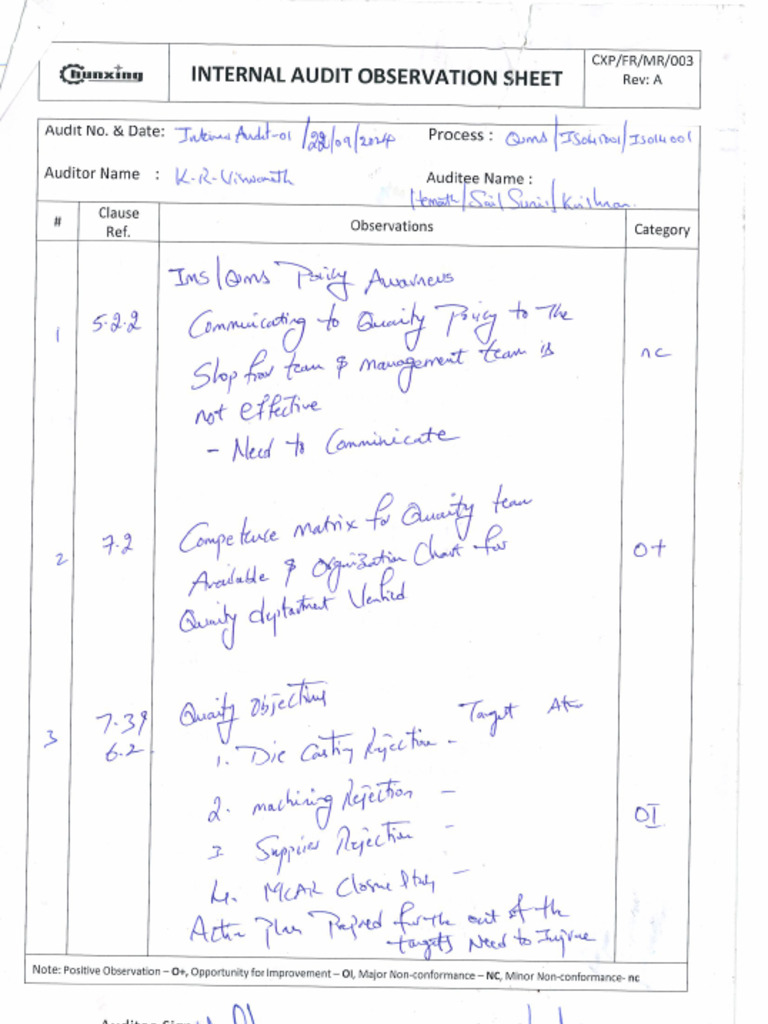 Chunxing
INTERNAL AUDIT OBSERVATION SHEET
CXP/FR/MR/003
Rev: A
Audit No. & Date: Internal Audit-01 /22/09/2024
Process : Qms/ISO45001/ISO14001
Auditor Name : K-R-Viswanath
Auditee Name :
Hemath/Sail Sunil/Krishnan
# Clause Ref. Observations Category
Ims/Qms Policy Awarness
1 5.2.2 Commuicating to Quality Policy to The
Shop froor team & management team is nc
not effective
- Need to Comminicate
2 7.2 Competence matrix for Quality team
Available & Orgnization Chart for O+
Quality department Verified
3 7.3 &
6.2
Quality Objectives
Target
1. Die Casting Rejection -
2. machining Rejection -
3 Supplier Rejection - OI
4. MCAR Closure -
Action Plan for the out of the
targets Need to Improve
Note: Positive Observation – O+, Opportunity for Improvement – OI, Major Non-conformance – NC, Minor Non-conformance- nc